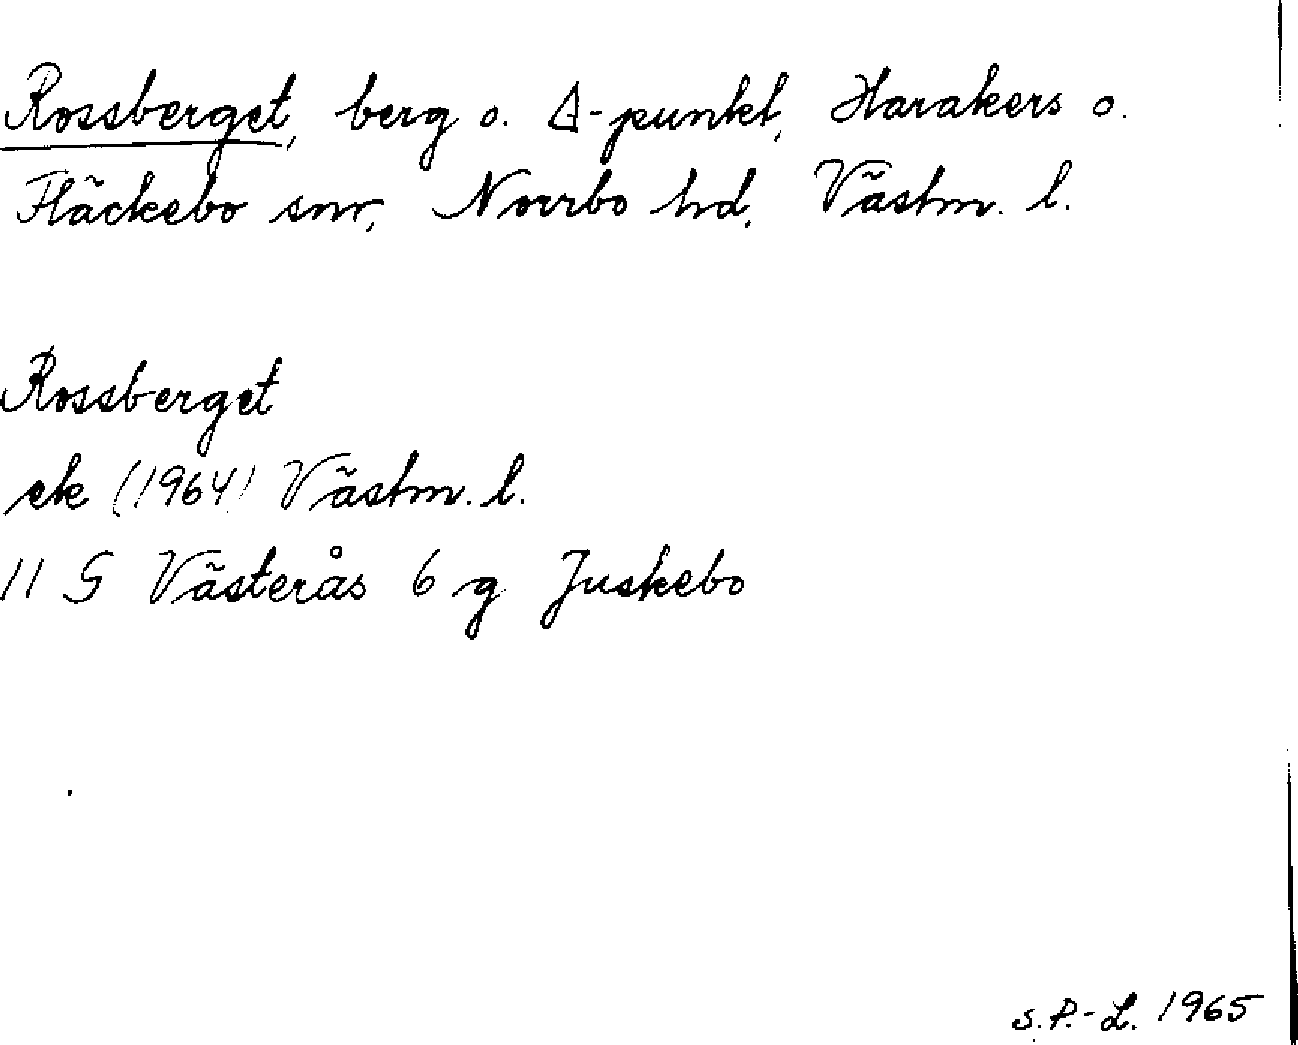 Rossberget, berg o. Δ-punkt, Harakers o.
Fläckebo snr, Norrbo hd, Västm. l.
Rossberget
ek (1964) Västm. l.
11 G Västerås 6 g Juskebo
S.P.-L. 1965